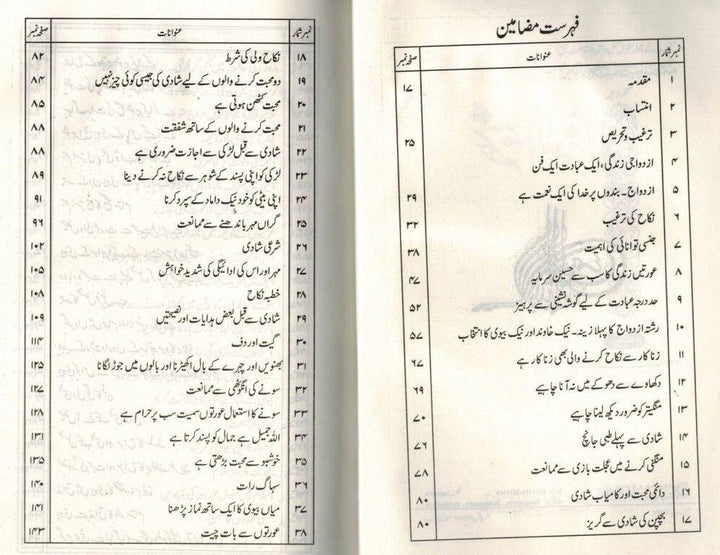 فہرست مضامین
نمبر شمار عنوانات صفحہ نمبر
۱ مقدمہ ۱۷
۲ انتساب
۳ ترغیب وتحریص ۲۵
۴ ازدواجی زندگی، ایک عبادت ایک فن
۵ ازدواج۔ بندوں پر خدا کی ایک نعمت ہے ۲۹
۶ نکاح کی ترغیب ۳۲
۷ جنسی توانائی کی اہمیت ۳۸
۸ عورتیں زندگی کا سب سے حسین سرمایہ ۴۷
۹ حد درجہ عبادت کے لیے گوشہ نشینی سے پرہیز ۵۲
۱۰ رشتہ ازدواج کا پہلا زینہ۔ نیک خاوند اور نیک بیوی کا انتخاب ۵۷
۱۱ زنا کار سے نکاح کرنے والی بھی زنا کار ہے ۶۷
۱۲ دکھاوے سے دھوکے میں نہ آنا چاہیے ۶۹
۱۳ منگیتر کو ضرور دیکھ لینا چاہیے ۷۰
۱۴ شادی سے پہلے طبی جانچ ۷۶
۱۵ منگنی کرنے میں عجلت بازی سے ممانعت ۷۸
۱۶ دائمی محبت اور کامیاب شادی ۸۰
۱۷ بچپن کی شادی سے گریز ۸۰
نمبر شمار عنوانات صفحہ نمبر
۱۸ نکاح ولی کی شرط ۸۲
۱۹ دو محبت کرنے والوں کے لیے شادی کی جیسی کوئی چیز نہیں ۸۴
۲۰ محبت کٹھن ہوتی ہے ۸۵
۲۱ محبت کرنے والوں کے ساتھ شفقت ۸۸
۲۲ شادی سے قبل لڑکی سے اجازت ضروری ہے ۸۸
۲۳ لڑکی کو اپنی پسند کے شوہر سے نکاح نہ کرنے دینا ۸۹
۲۴ اپنی بیٹی کو خود نیک داماد کے سپرد کرنا ۹۱
۲۵ گراں مہر باندھنے سے ممانعت ۹۶
۲۶ شرعی شادی ۱۰۲
۲۷ مہر اور اس کی ادائیگی کی شدید خواہش ۱۰۵
۲۸ خطبہ نکاح ۱۰۸
۲۹ شادی سے قبل بعض ہدایات اور نصیحتیں ۱۰۹
۳۰ گیت اور دف ۱۱۴
۳۱ بھنویں اور چہرے کے بال اکھیڑنا اور بالوں میں جوڑ لگانا ۱۲۵
۳۲ سونے کی انگوٹھی سے ممانعت ۱۲۷
۳۳ سونے کا استعمال عورتوں سمیت سب پر حرام ہے ۱۲۸
۳۴ اللہ جمیل ہے جمال کو پسند کرتا ہے ۱۳۱
۳۵ خوشبو سے محبت بڑھتی ہے ۱۳۵
۳۶ سہاگ رات ۱۴۰
۳۷ میاں بیوی کا ایک ساتھ نماز پڑھنا ۱۴۱
۳۸ عورتوں سے بات چیت ۱۴۳